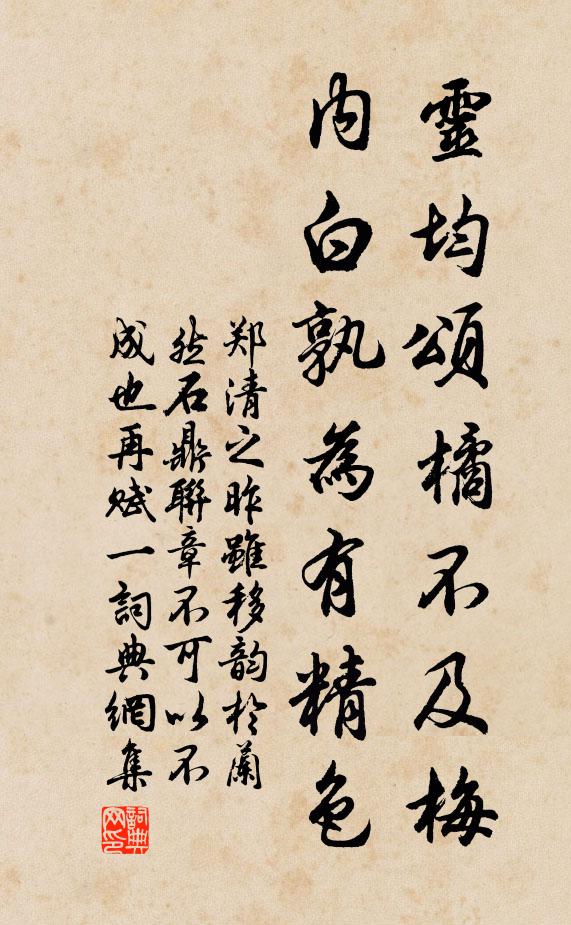 靈均頌橘不及梅
內白孰為有精色
郑清之昨雖移韵於蘭
然石鼎聯章不可以不
成也再赋一詞典網集
詞典
网印